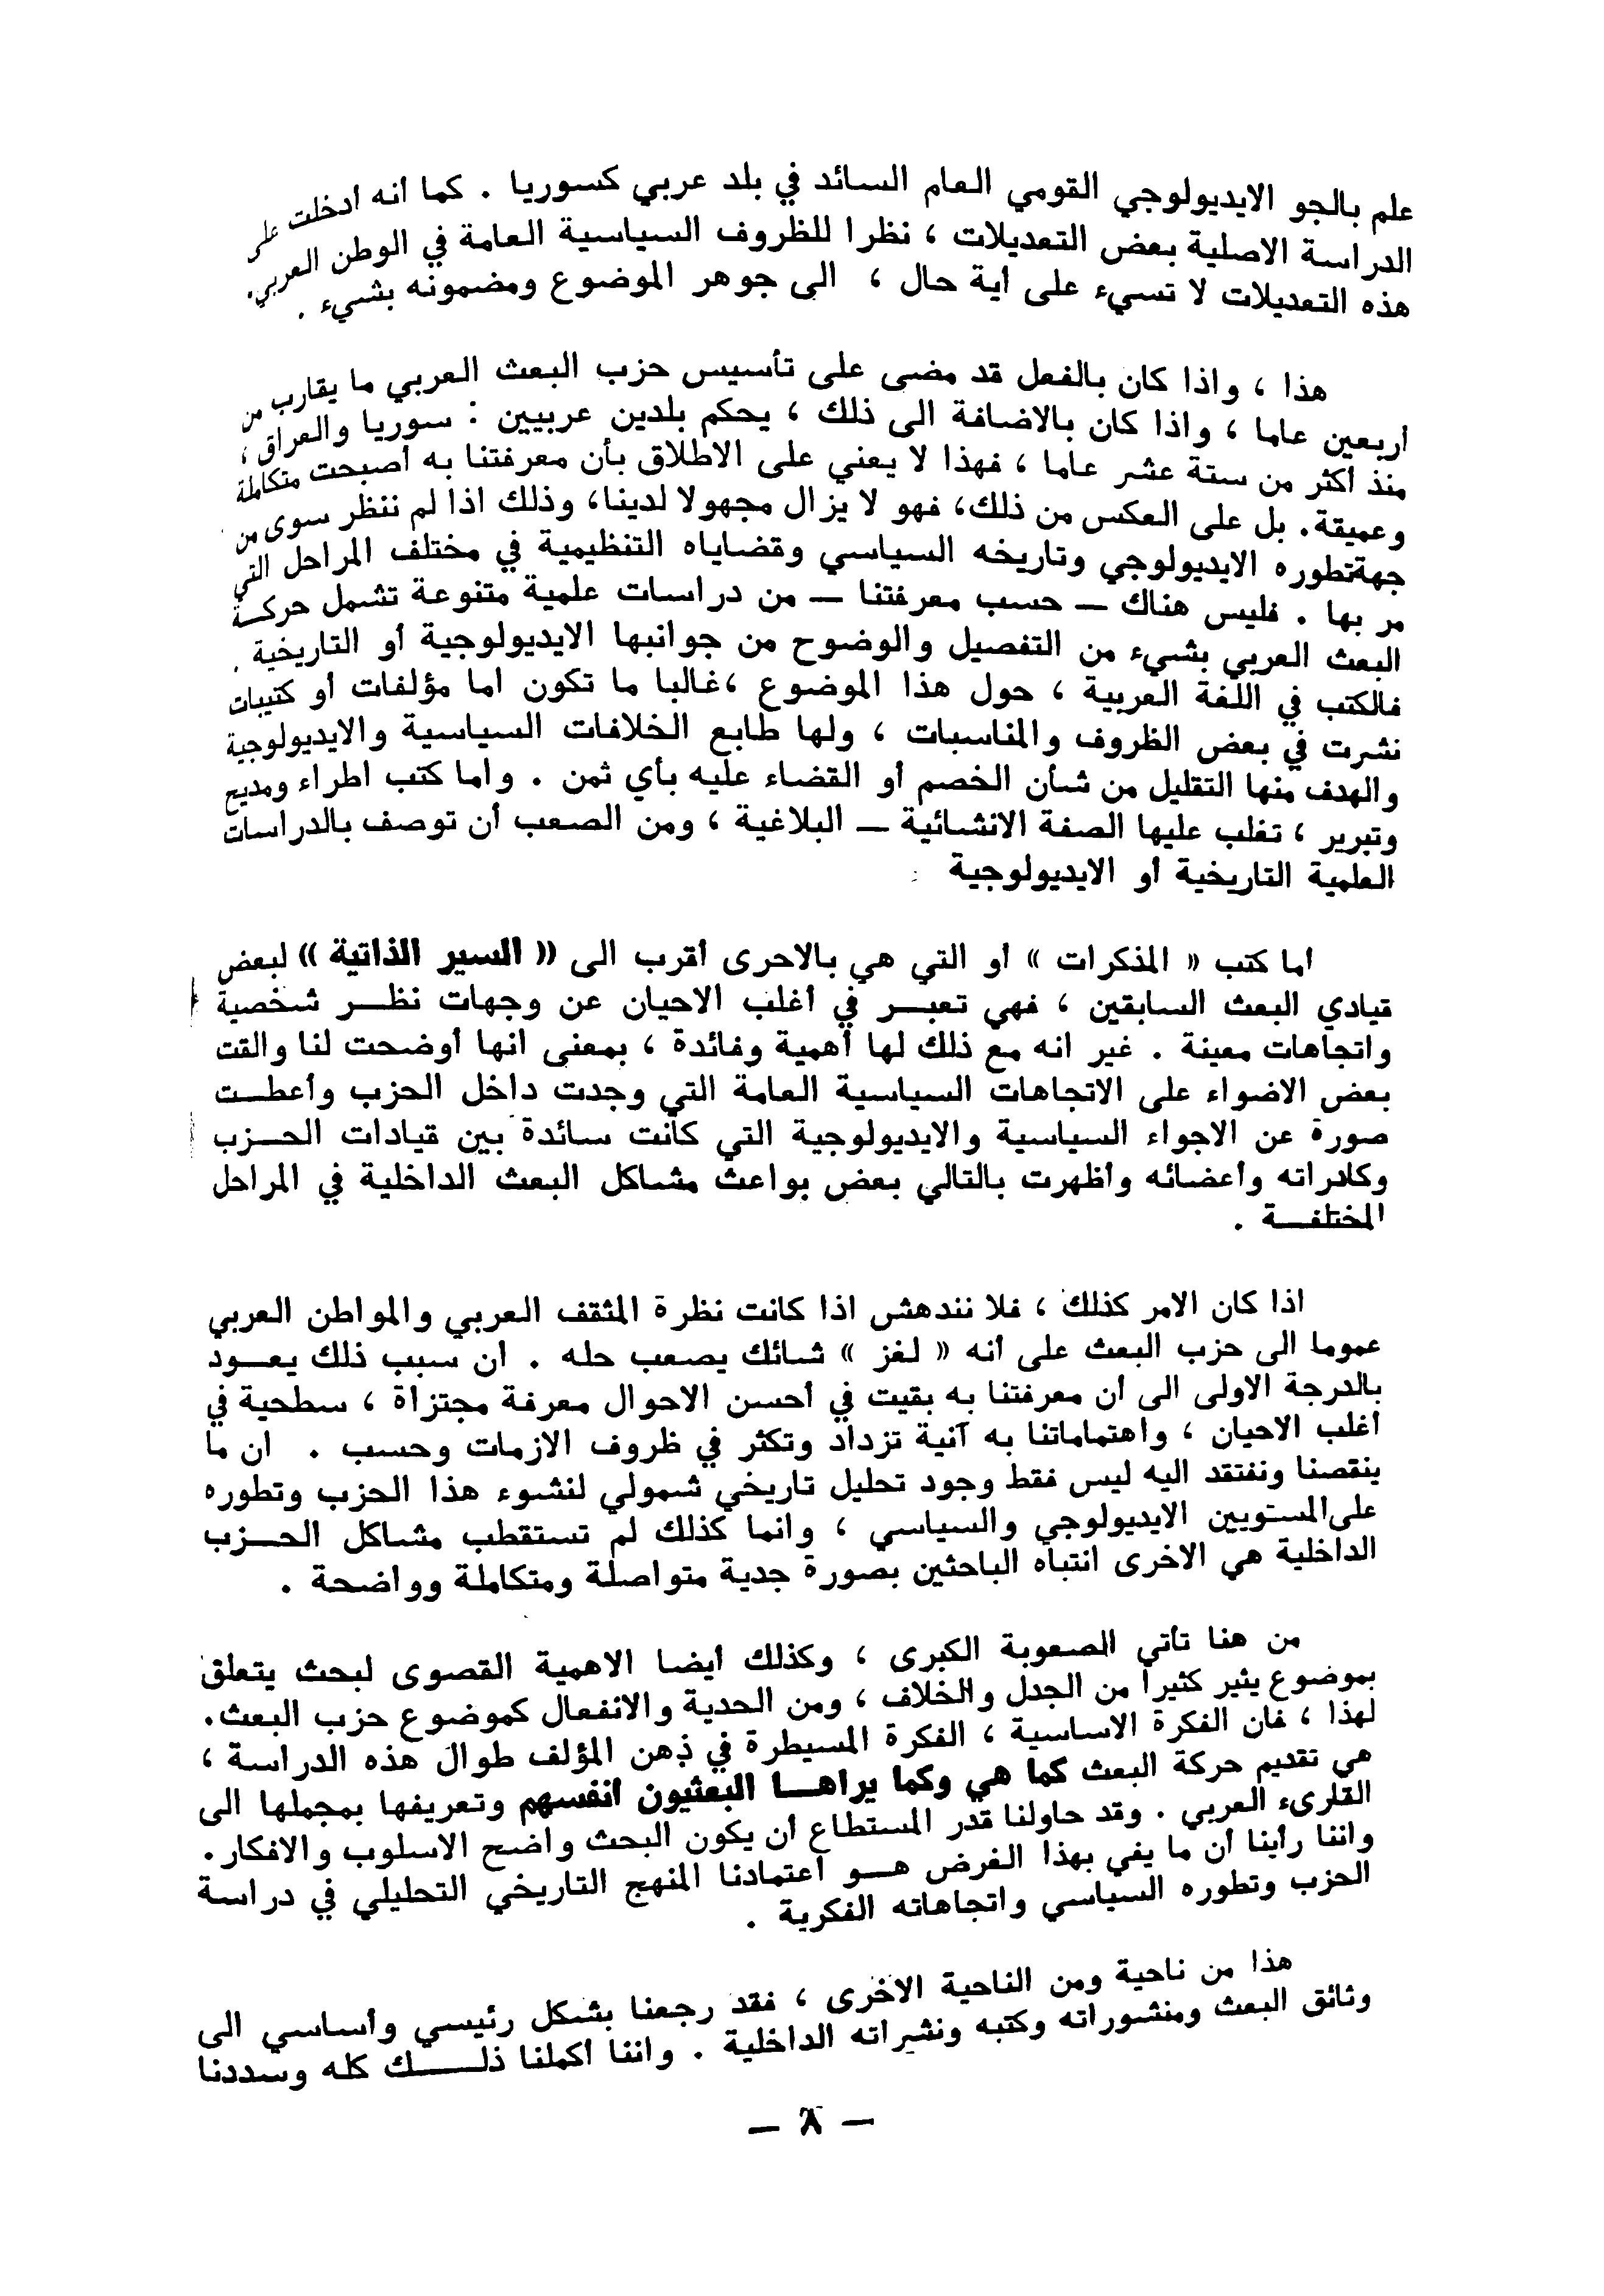 علم بالجو الايديولوجي القومي العام السائد في بلد عربي كسوريا . كما أنه أدخلت على
الدراسة الاصلية بعض التعديلات ، نظرا للظروف السياسية العامة في الوطن العربي.
هذه التعديلات لا تسيء على أية حال ، الى جوهر الموضوع ومضمونه بشيء .
هذا ، واذا كان بالفعل قد مضى على تأسيس حزب البعث العربي ما يقارب من
أربعين عاما ، واذا كان بالاضافة الى ذلك ، يحكم بلدين عربيين : سوريا والعراق ،
منذ أكثر من ستة عشر عاما ، فهذا لا يعني على الاطلاق بأن معرفتنا به أصبحت متكاملة
وعميقة. بل على العكس من ذلك، فهو لا يزال مجهولا لدينا، وذلك اذا لم ننظر سوى من
جهةتطوره الايديولوجي وتاريخه السياسي وقضاياه التنظيمية في مختلف المراحل التي
مر بها . فليس هناك — حسب معرفتنا — من دراسات علمية متنوعة تشمل حركة
البعث العربي بشيء من التفصيل والوضوح من جوانبها الايديولوجية أو التاريخية .
فالكتب في اللغة العربية ، حول هذا الموضوع ،غالبا ما تكون اما مؤلفات أو كتيبات
نشرت في بعض الظروف والمناسبات ، ولها طابع الخلافات السياسية والايديولوجية
والهدف منها التقليل من شأن الخصم أو القضاء عليه بأي ثمن . واما كتب اطراء ومديح
وتبرير ، تغلب عليها الصفة الانشائية — البلاغية ، ومن الصعب أن توصف بالدراسات
العلمية التاريخية أو الايديولوجية
أما كتب « المذكرات » أو التي هي بالاحرى أقرب الى « السير الذاتية » لبعض
قيادي البعث السابقين ، فهي تعبـــر في أغلب الاحيان عن وجهات نظـــر شخصية
واتجاهات معينة . غير انه مع ذلك لها أهمية وفائدة ، بمعنى انها أوضحت لنا والقت
بعض الاضواء على الاتجاهات السياسية العامة التي وجدت داخل الحزب وأعطـــت
صورة عن الاجواء السياسية والايديولوجية التي كانت سائدة بين قيادات الحـــزب
وكادراته وأعضائه وأظهرت بالتالي بعض بواعث مشاكل البعث الداخلية في المراحل
المختلفـــة .
اذا كان الامر كذلك ، فلا نندهش اذا كانت نظرة المثقف العربي والمواطن العربي
عموما الى حزب البعث على أنه « لغز » شائك يصعب حله . ان سبب ذلك يعـــود
بالدرجة الاولى الى أن معرفتنا به بقيت في أحسن الاحوال معرفة مجتزأة ، سطحية في
أغلب الاحيان ، واهتماماتنا به آنية تزداد وتكثر في ظروف الازمات وحسب . ان ما
ينقصنا ونفتقد اليه ليس فقط وجود تحليل تاريخي شمولي لنشوء هذا الحزب وتطوره
على‌المستويين الايديولوجي والسياسي ، وانما كذلك لم تستقطب مشاكل الحـــزب
الداخلية هي الاخرى انتباه الباحثين بصورة جدية متواصلة ومتكاملة وواضحة .
من هنا تأتي الصعوبة الكبرى ، وكذلك أيضا الاهمية القصوى لبحث يتعلق
بموضوع يثير كثيرا من الجدل والخلاف ، ومن الحدية والانفعال كموضوع حزب البعث.
لهذا ، فان الفكرة الاساسية ، الفكرة المسيطرة في ذهن المؤلف طوال هذه الدراسة ،
هي تقديم حركة البعث كما هي وكما يراهـــا البعثيون أنفسهم وتعريفها بمجملها الى
القارىء العربي . وقد حاولنا قدر المستطاع أن يكون البحث واضح الاسلوب والافكار.
واننا رأينا أن ما يفي بهذا الغرض هـــو اعتمادنا المنهج التاريخي التحليلي في دراسة
الحزب وتطوره السياسي واتجاهاته الفكرية .
هذا من ناحية ومن الناحية الاخرى ، فقد رجعنا بشكل رئيسي وأساسي الى
وثائق البعث ومنشوراته وكتبه ونشراته الداخلية . واننا أكملنا ذلـــــك كله وسددنا
— ٨ —